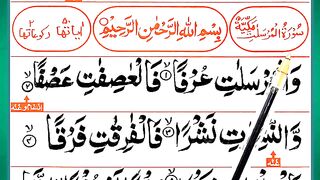 سُوْرَةُ الْمُرْسَلٰتِ مَكِّيَّةٌ
بِسْمِ اللّٰهِ الرَّحْمٰنِ الرَّحِيْمِ
اٰيَاتُهَا ٥٠ رُكُوْعَاتُهَا ٢
وَالْمُرْسَلٰتِ عُرْفًا ۙ﴿١﴾ فَالْعٰصِفٰتِ عَصْفًا ۙ﴿٢﴾
وَّالنّٰشِرٰتِ نَشْرًا ۙ﴿٣﴾ فَالْفٰرِقٰتِ فَرْقًا ۙ﴿٤﴾